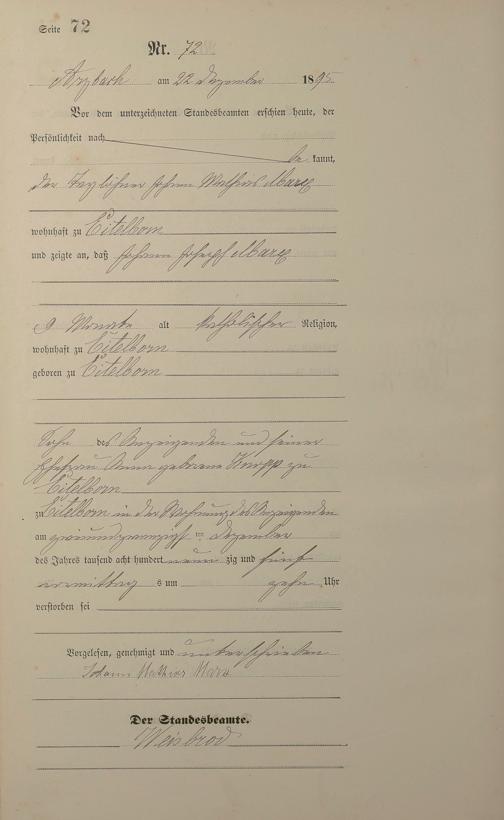 Seite 72
Nr. 72
Arzbach am 22 Dezember 1895
Vor dem unterzeichneten Standesbeamten erschien heute, der
Persönlichkeit nach
be kannt,
der Taglöhner Johann Mathias Marx
wohnhaft zu Eitelborn
und zeigte an, daß Johann Joseph Marx
9 Monate alt katholischer Religion,
wohnhaft zu Eitelborn
geboren zu Eitelborn
Sohn des Anzeigenden und seiner
Ehefrau Anna geborene Knopp zu
Eitelborn
zu Eitelborn in der Wohnung des Anzeigenden
am zweiundzwanzigsten Dezember
des Jahres tausend acht hundert neun zig und fünf
vormittag s um zehn Uhr
verstorben sei
Vorgelesen, genehmigt und unterschrieben
Johann Mathias Marx
Der Standesbeamte.
Weisbrod